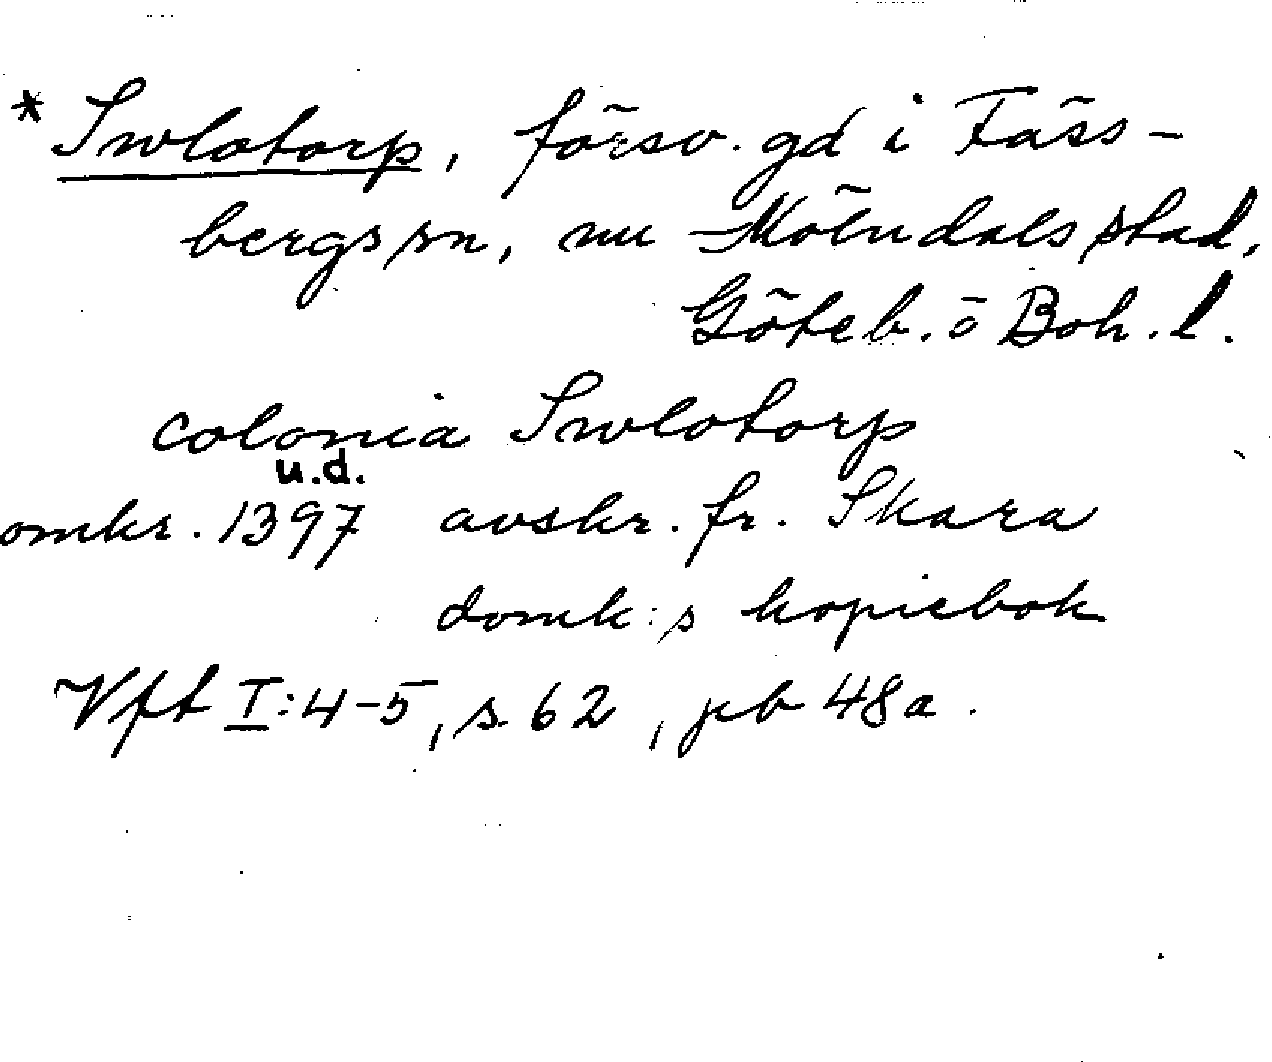 * Swlotorp, försv. gd i Fäss-
bergs sn, nu Mölndals stad,
Göteb. o Boh. l.
colonia Swlotorp
u.d.
omkr. 1397 avskr. fr. Skara
domk:s kopiebok
Vft I:4-5, s. 62, pb 48a.